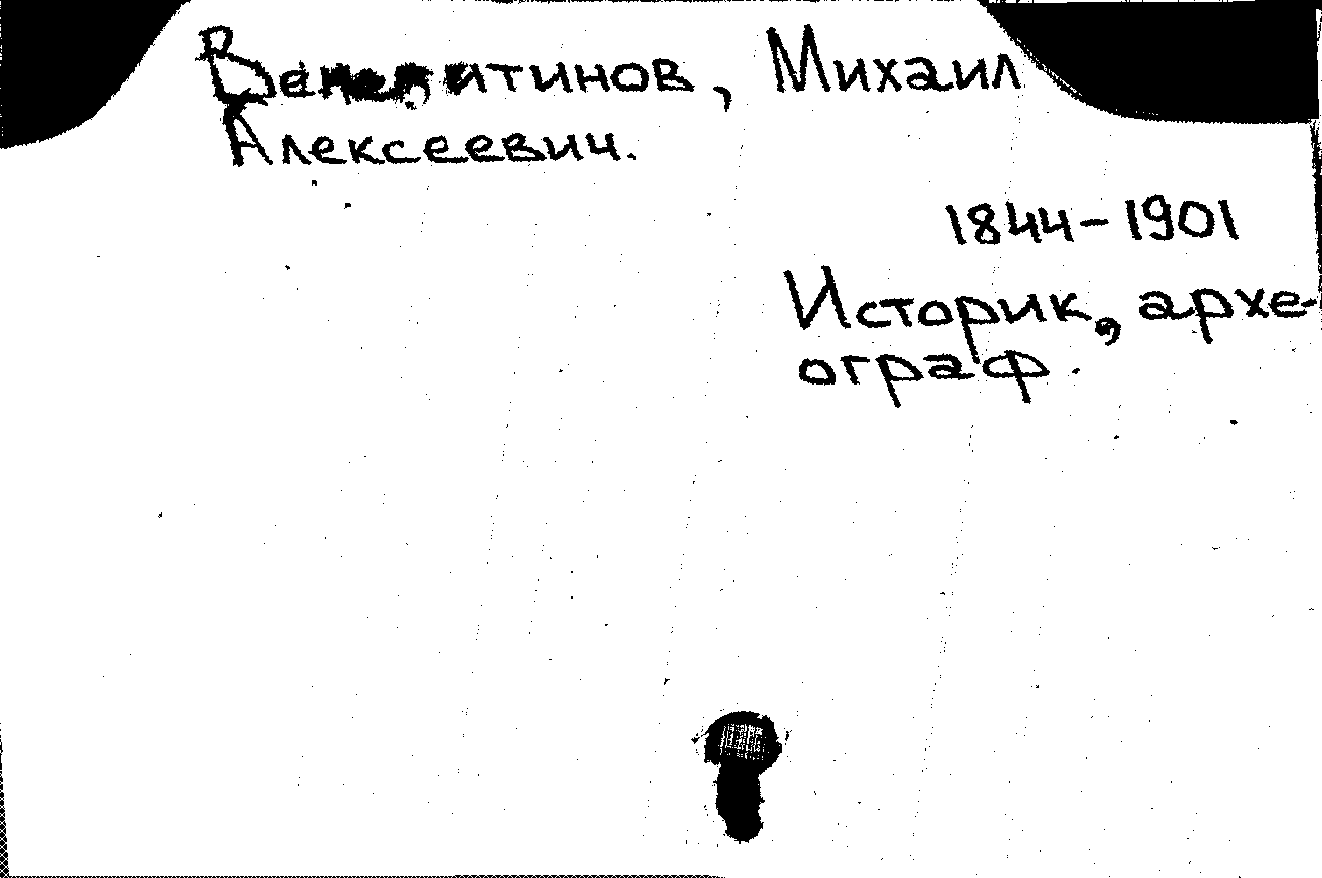 Веневитинов, Михаил
Алексеевич.
1844-1901
Историк, архе-
ограф.